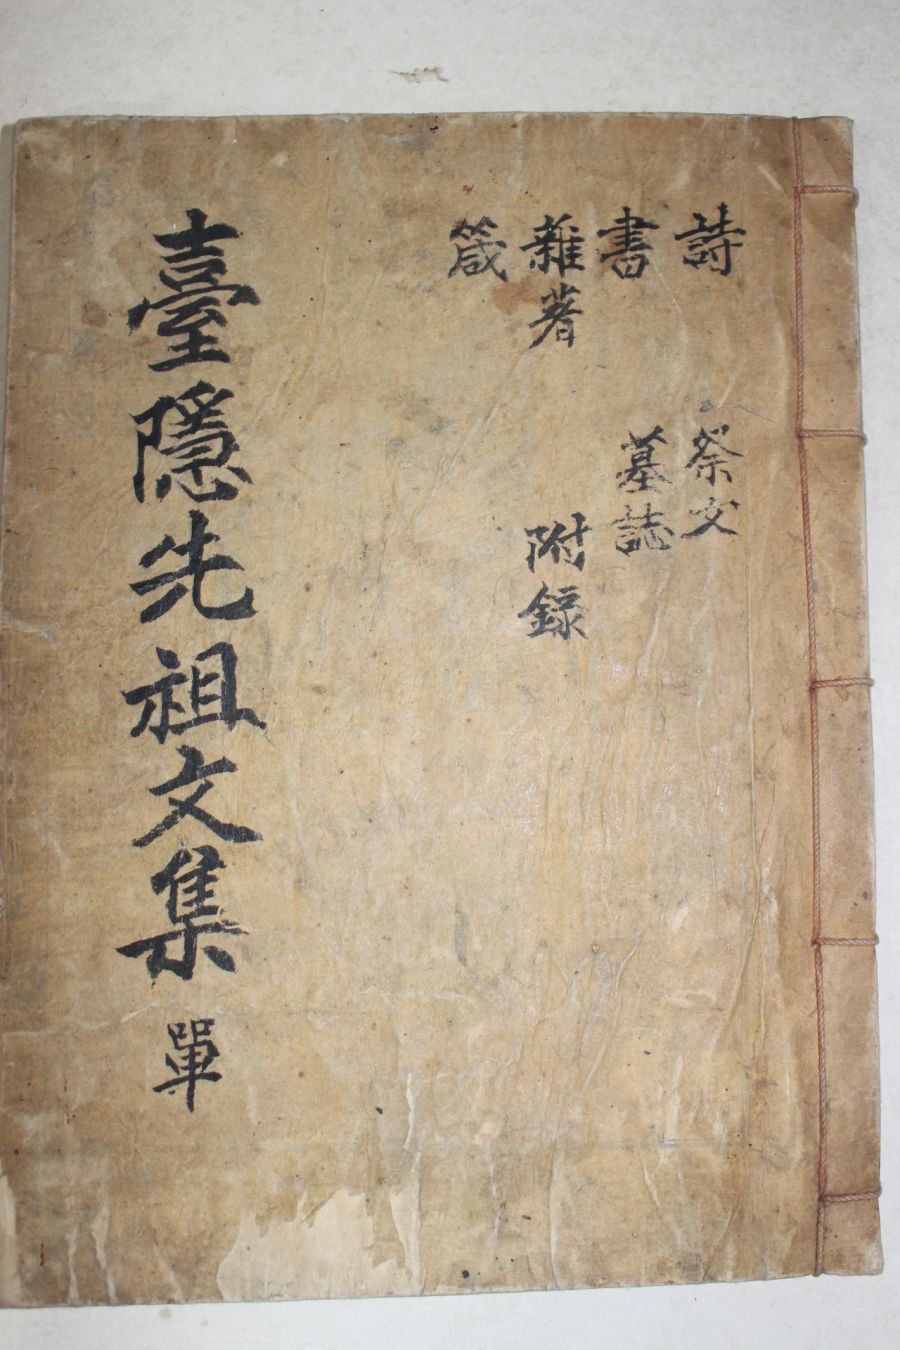 詩
書
雜著
箴
祭文
墓誌
附録
臺隱先祖文集 單